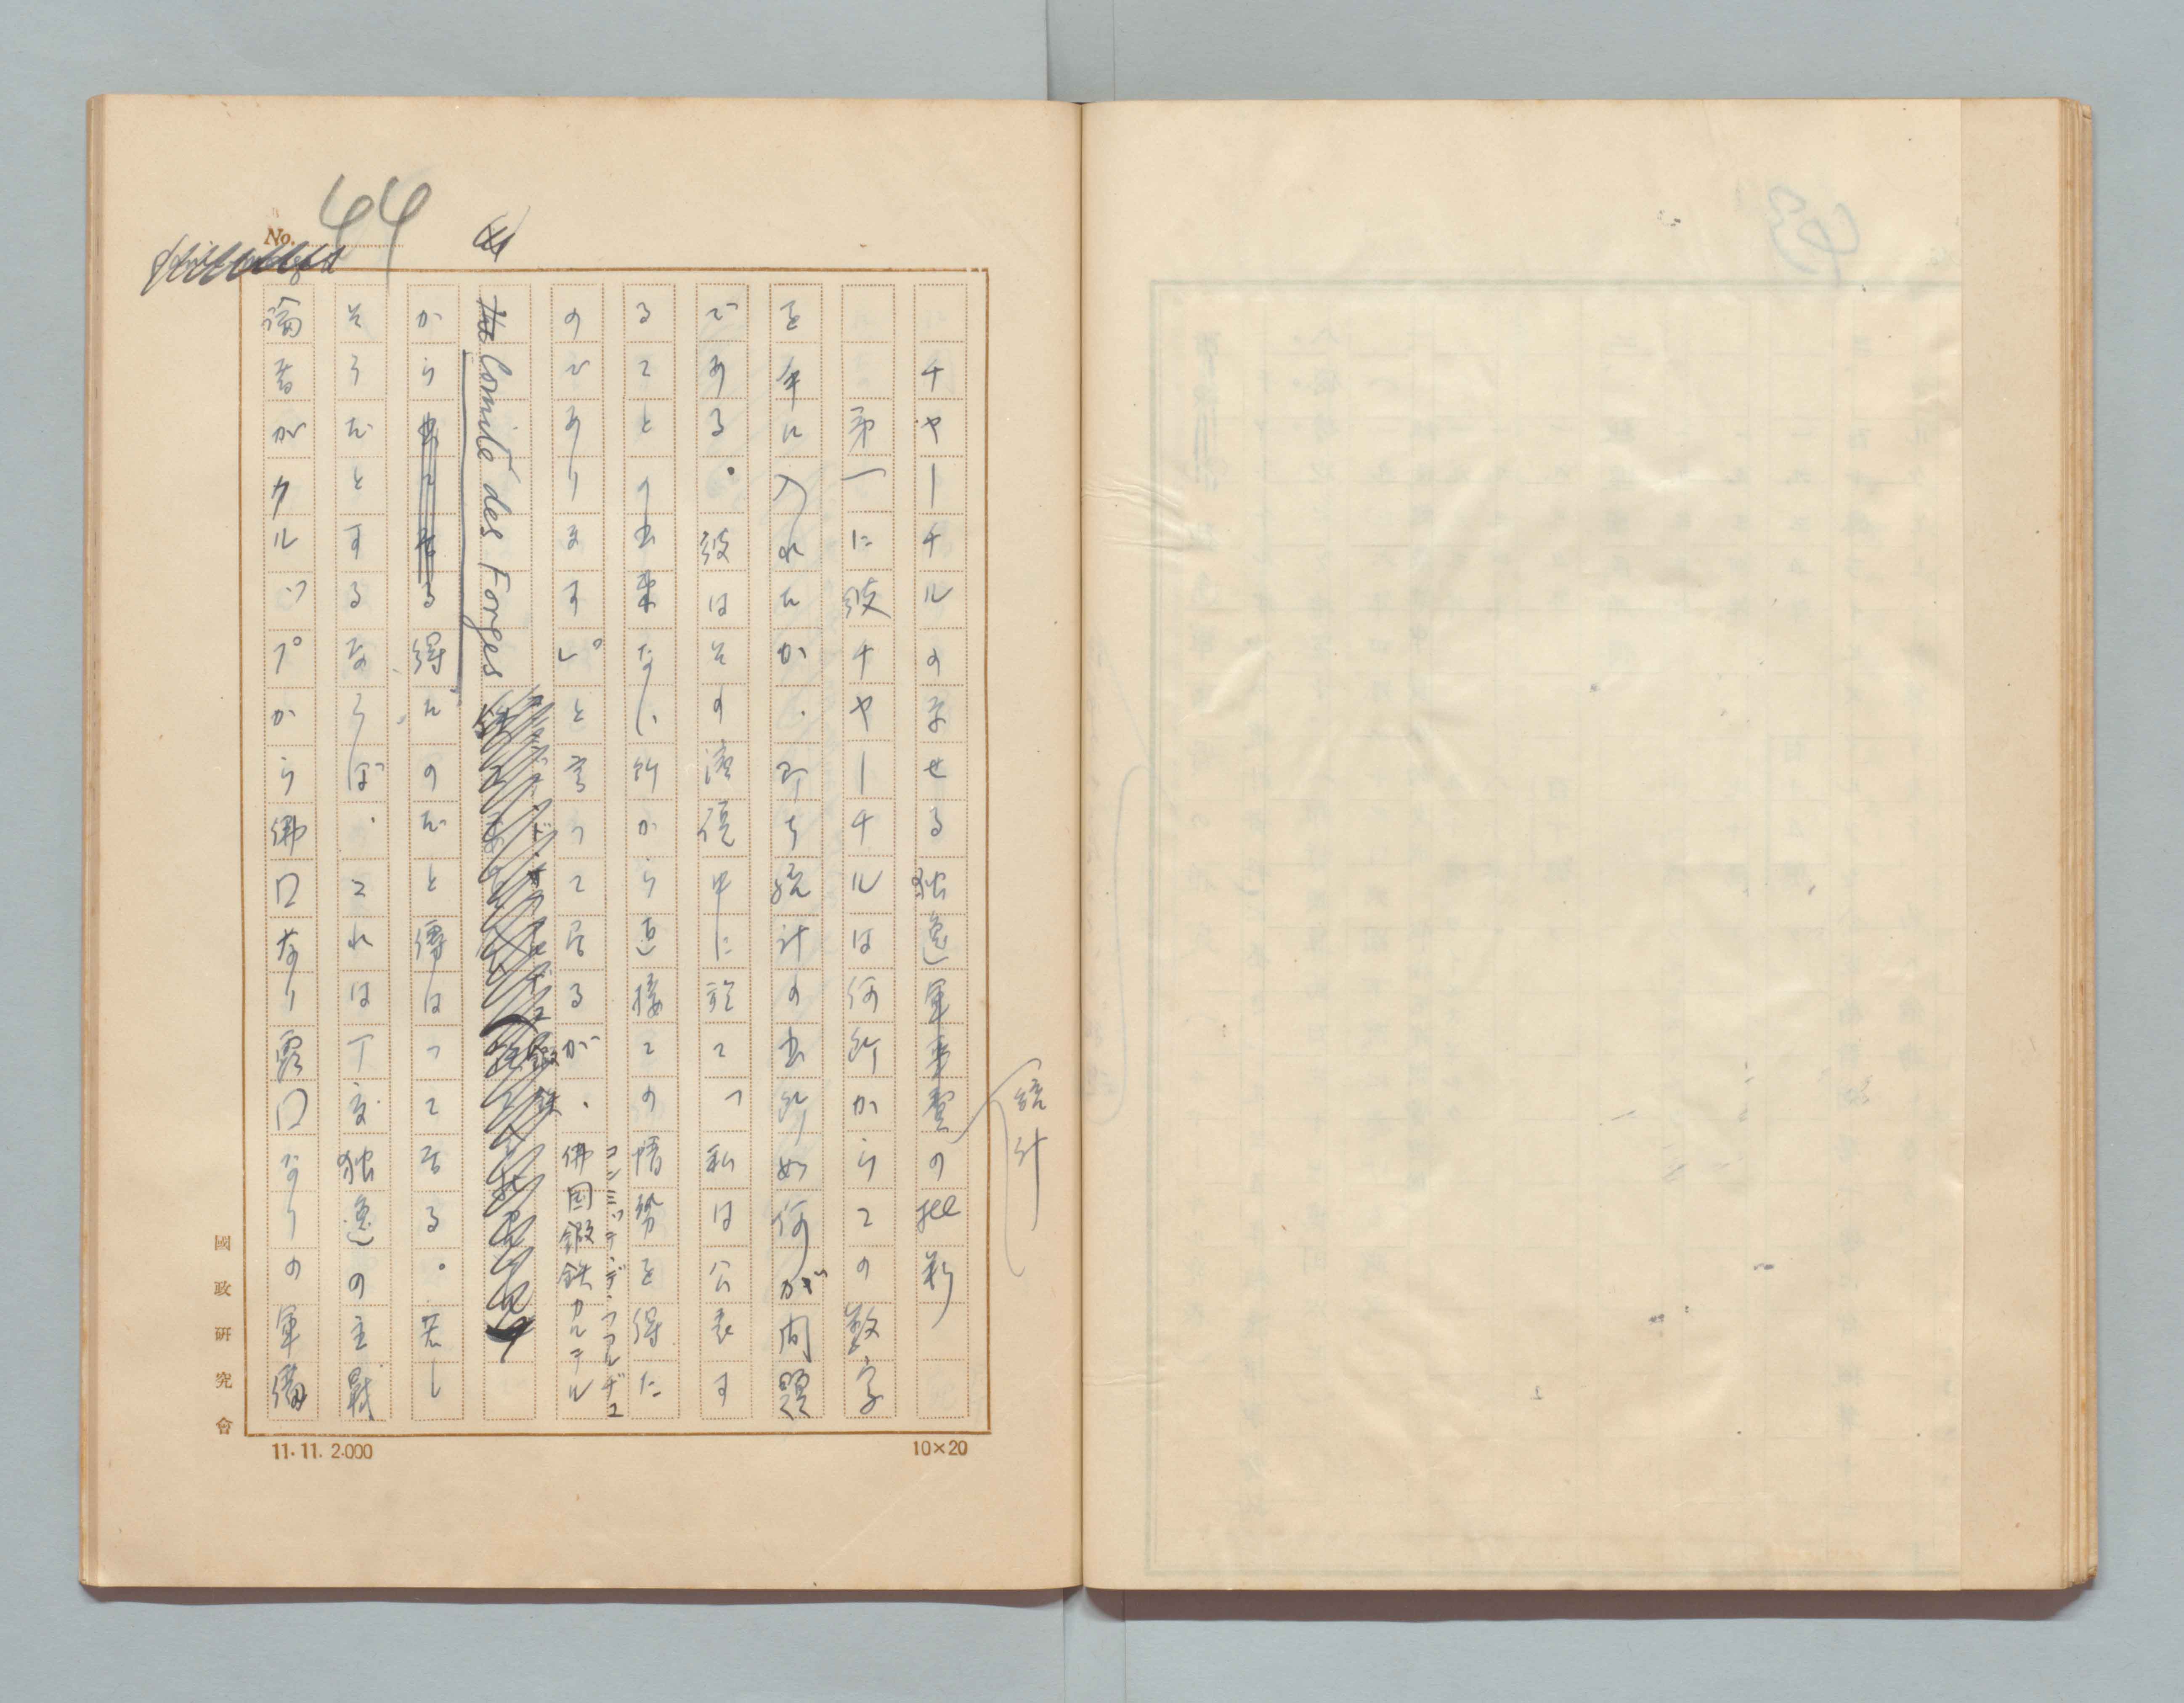 No. 44
チャーチルの示せる独逸軍事費統計の批判
第一に彼チャーチルは何所からこの数字
を手に入れたか、即ち統計の出所如何が問題
である。彼はその演説中に於て「私は公表す
ることの出来ない所から直接この情勢を得た
のであります」。と言って居るが、佛国鍛鉄カルテル
コンミッテ・デ・フォルヂュ
Comité des Forges
から得たのだと傳はって居る。若し
そうだとするならば、これは丁度独逸の主戦
論者がクルップから佛国なり露国なりの軍備
國政研究會
11.11. 2.000
10×20